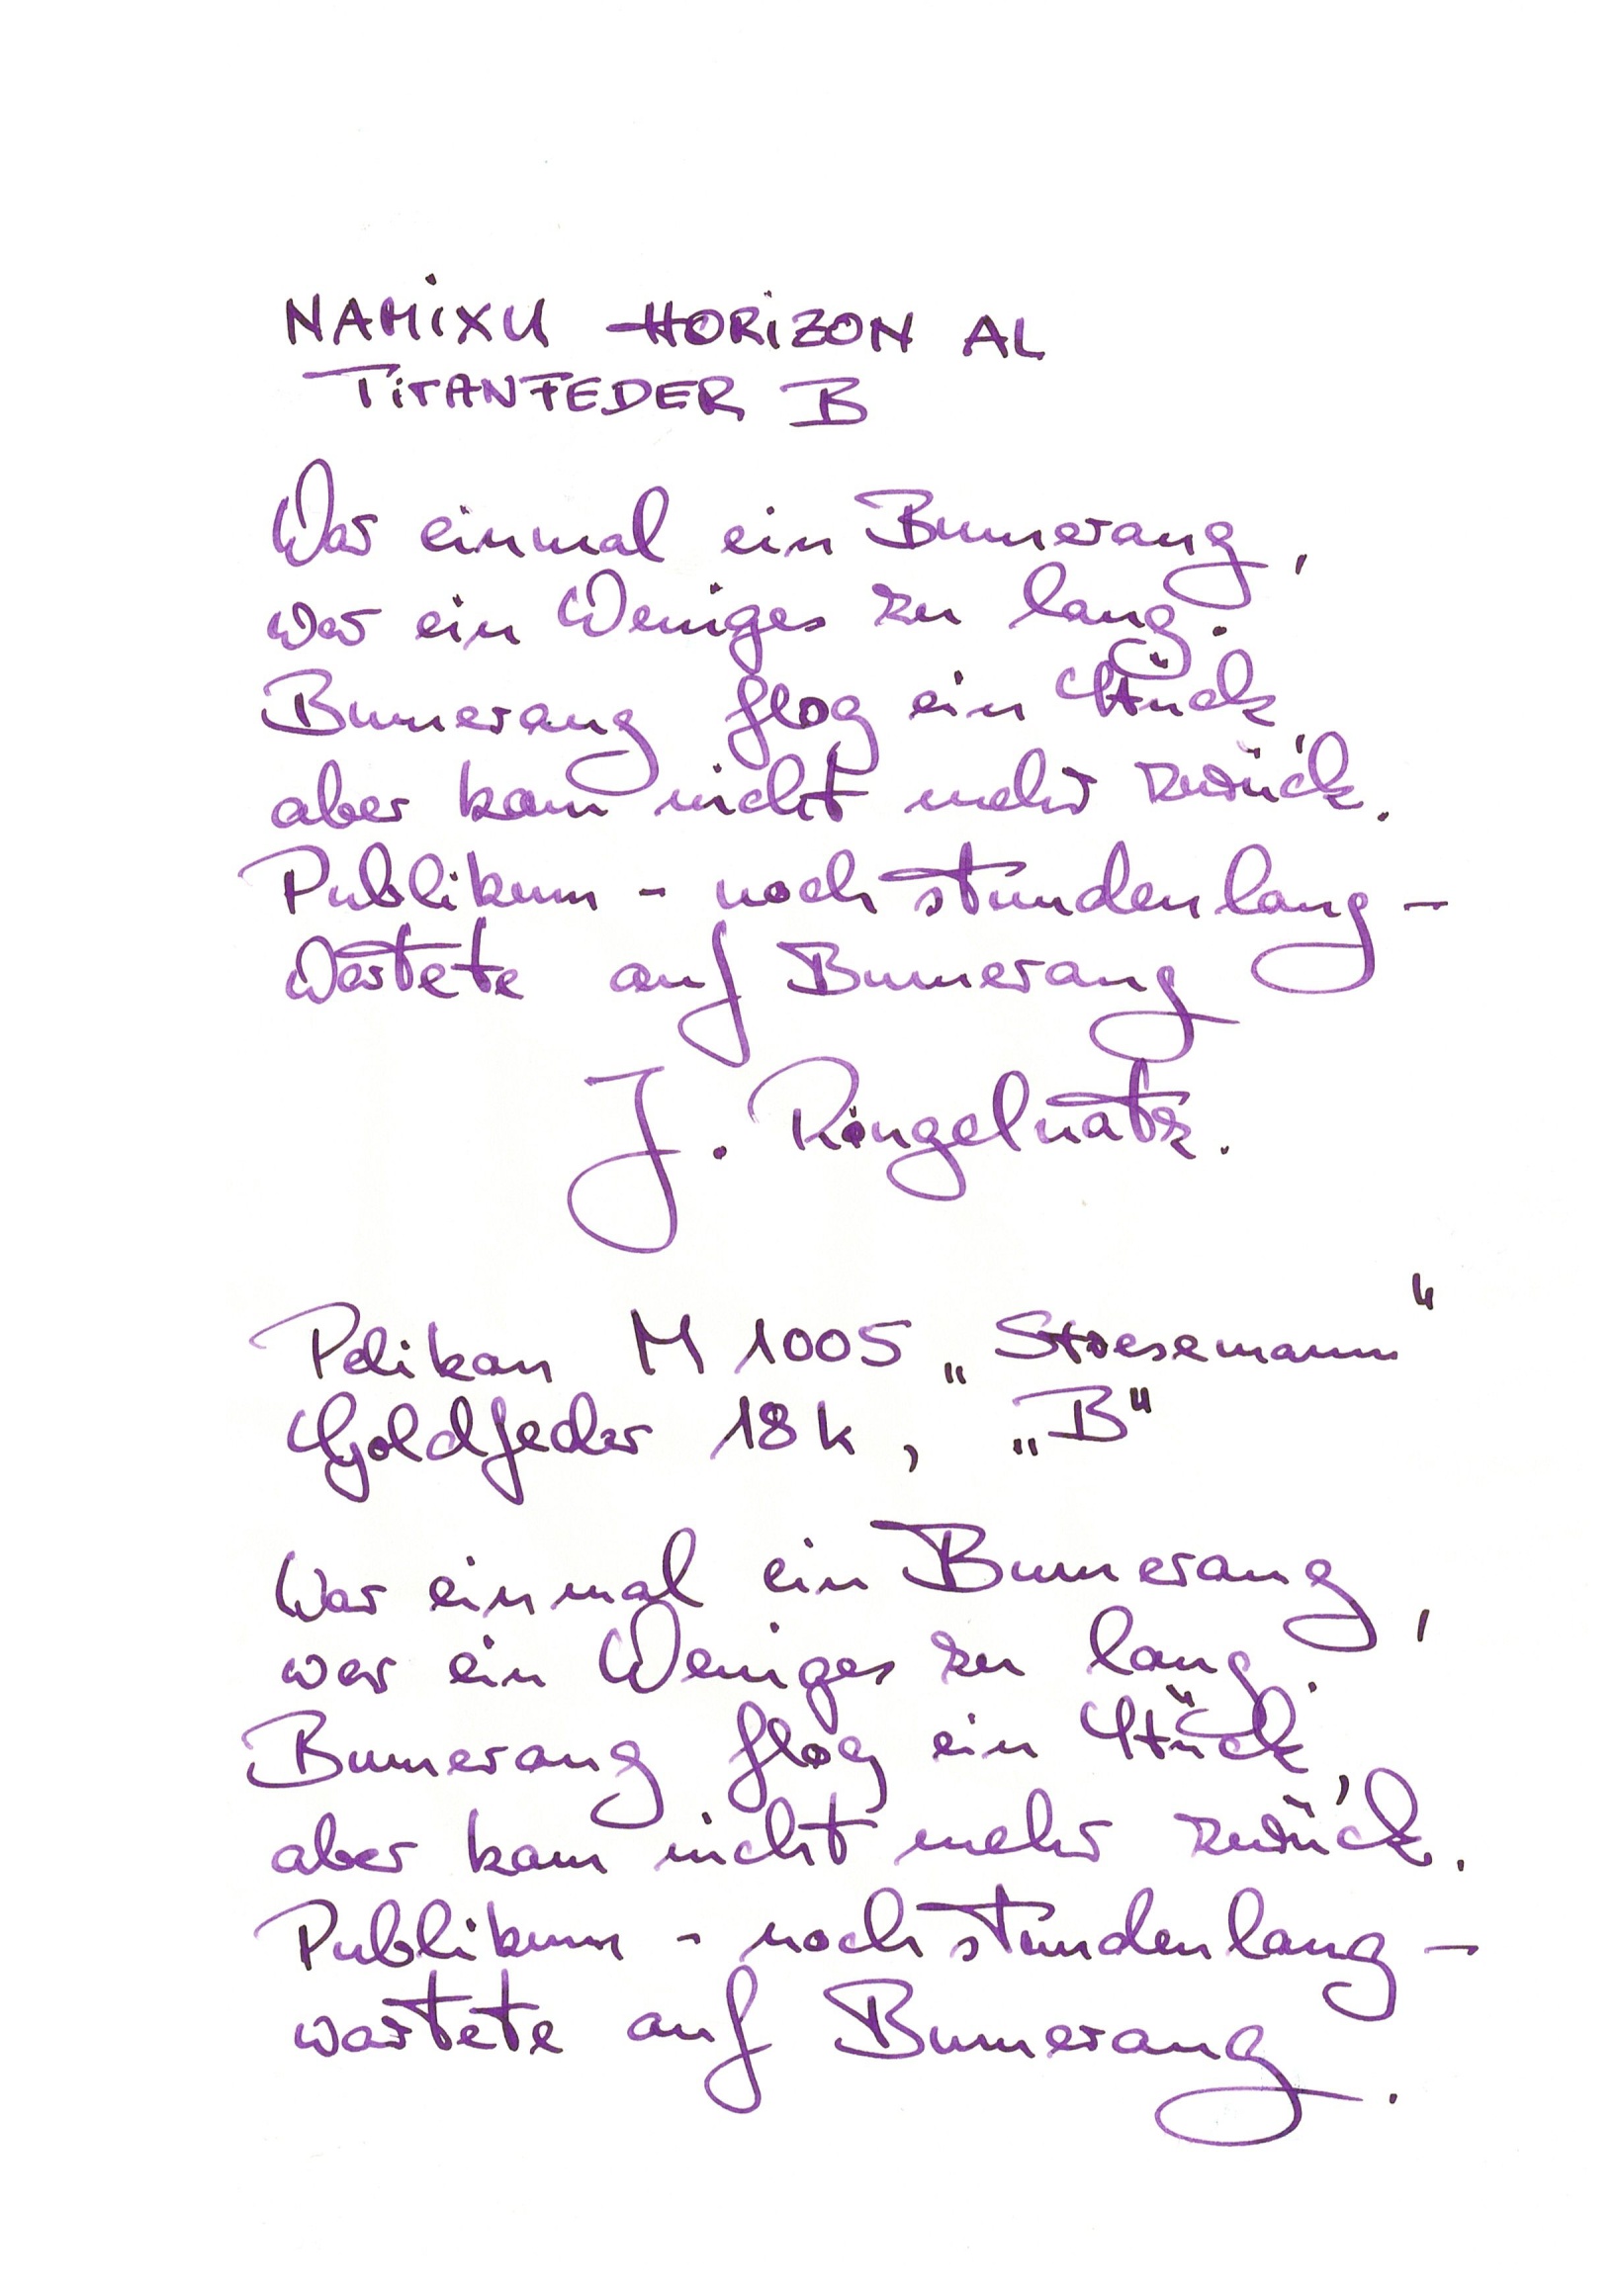 NAMiXU HORiZON AL
TiTANFEDER B
War einmal ein Bumerang,
war ein Weniges zu lang.
Bumerang flog ein Stück
aber kam nicht mehr zurück.
Publikum - noch stundenlang -
Wartete auf Bumerang
J. Ringelnatz.
Pelikan M 1005 „Stresemann"
Goldfeder 18k, „B"
War einmal ein Bumerang,
war ein Weniges zu lang.
Bumerang flog ein Stück,
aber kam nicht mehr zurück.
Publikum - noch stundenlang -
wartete auf Bumerang.